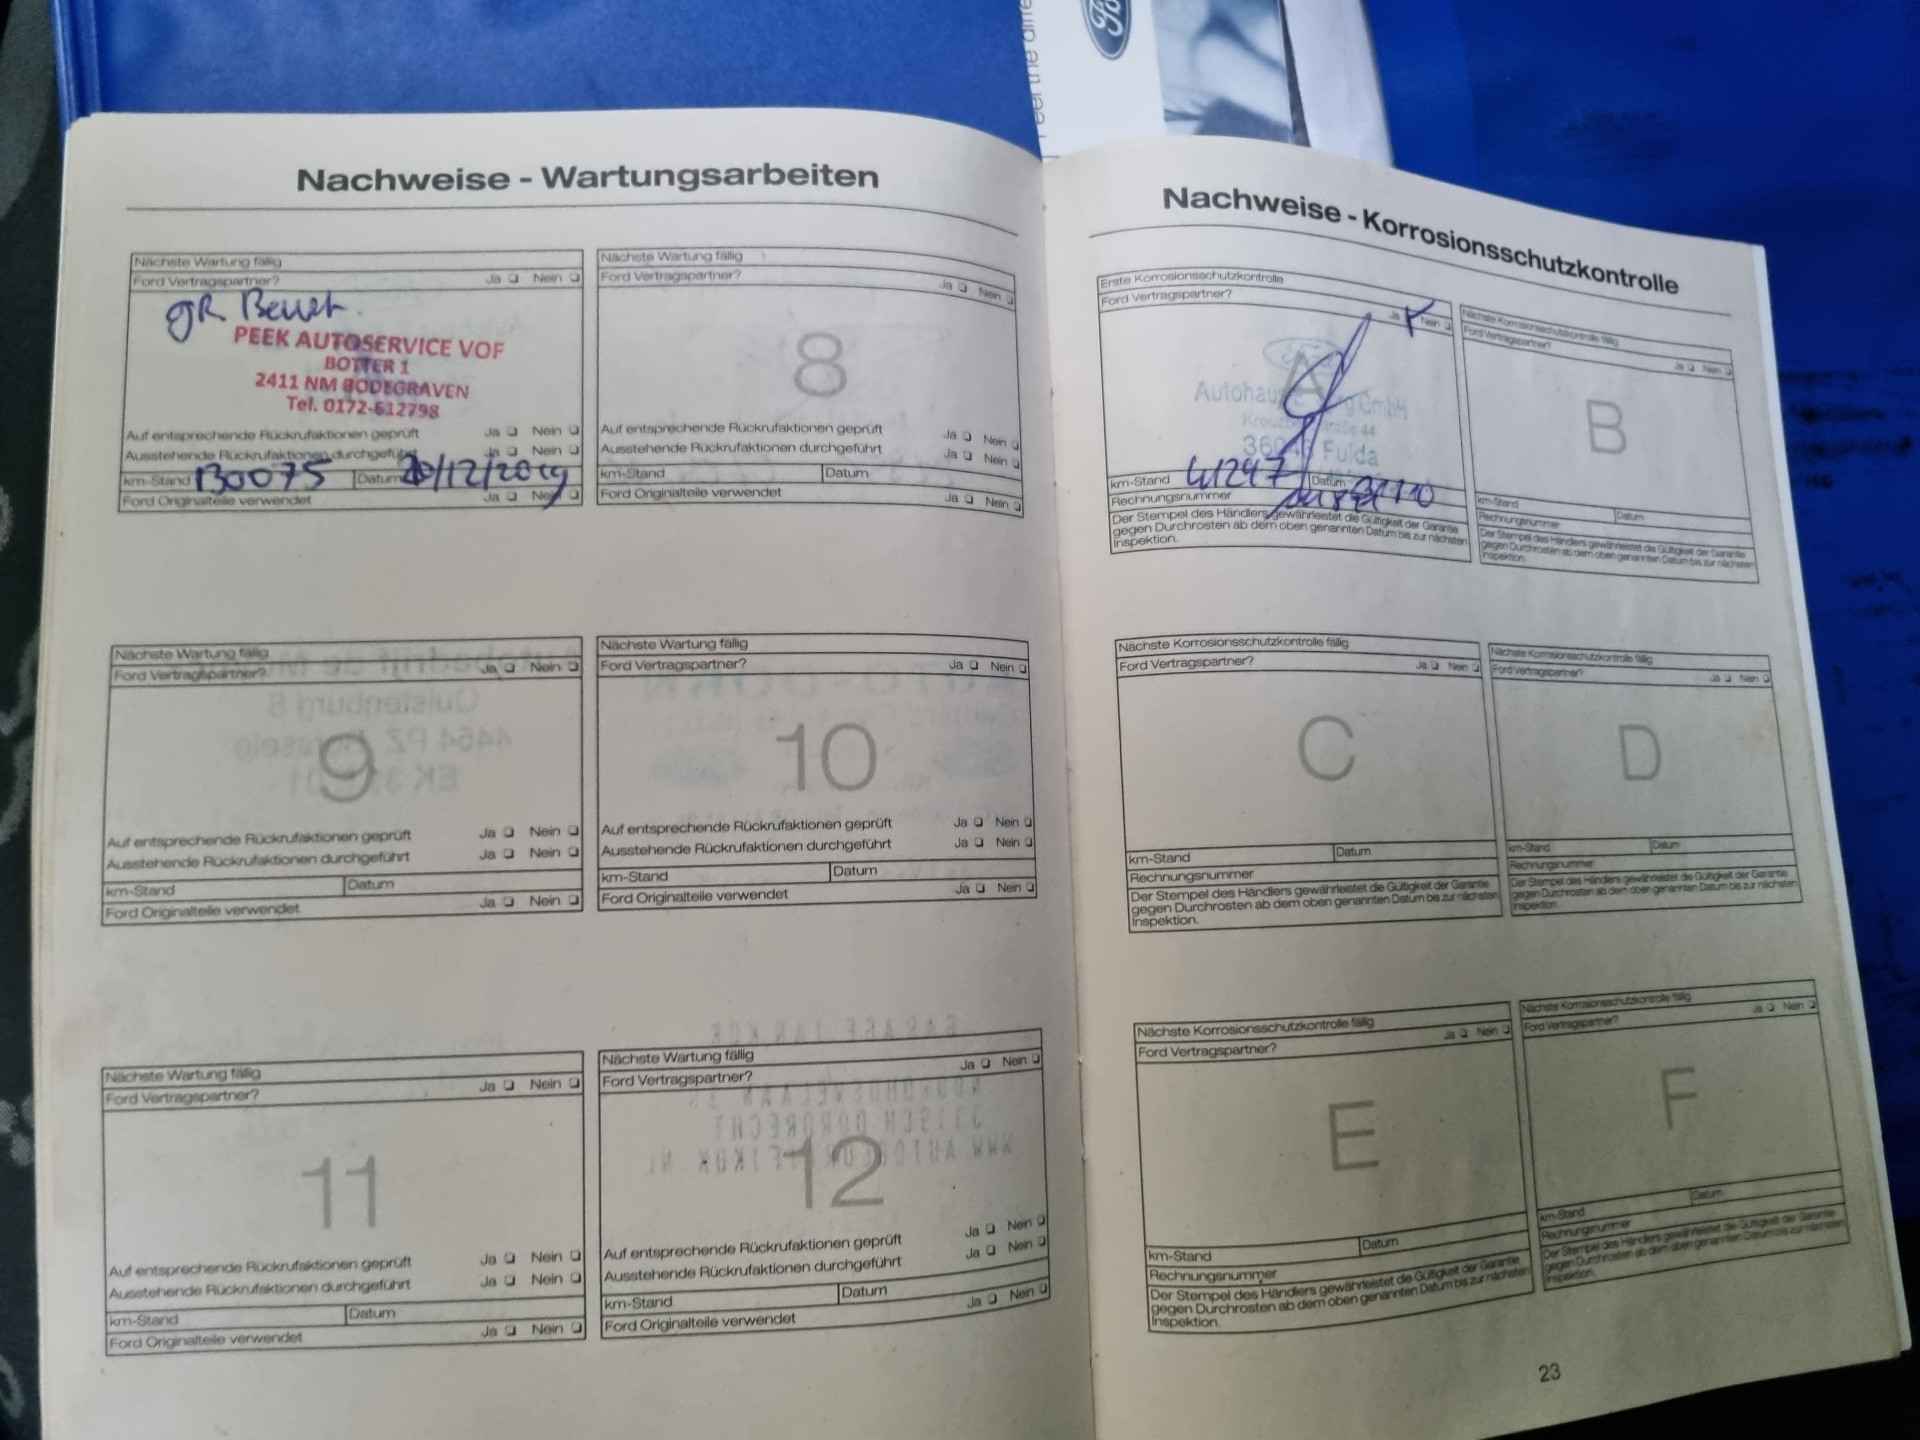 Ford
Feel the diffe
Nachweise - Wartungsarbeiten
Nächste Wartung fällig
Ford Vertragspartner? Ja ❏ Nein ❏
gR Beurt.
PEEK AUTOSERVICE VOF
BOTTER 1
2411 NM BODEGRAVEN
Tel. 0172-612798
Auf entsprechende Rückrufaktionen geprüft Ja ❏ Nein ❏
Ausstehende Rückrufaktionen durchgeführt Ja ❏ Nein ❏
km-Stand 130075 Datum 20/12/2019
Ford Originalteile verwendet Ja ❏ Nein ❏
Nächste Wartung fällig
Ford Vertragspartner? Ja ❏ Nein ❏
8
Auf entsprechende Rückrufaktionen geprüft Ja ❏ Nein ❏
Ausstehende Rückrufaktionen durchgeführt Ja ❏ Nein ❏
km-Stand Datum
Ford Originalteile verwendet Ja ❏ Nein ❏
Nächste Wartung fällig
Ford Vertragspartner? Ja ❏ Nein ❏
9
Auf entsprechende Rückrufaktionen geprüft Ja ❏ Nein ❏
Ausstehende Rückrufaktionen durchgeführt Ja ❏ Nein ❏
km-Stand Datum
Ford Originalteile verwendet Ja ❏ Nein ❏
Nächste Wartung fällig
Ford Vertragspartner? Ja ❏ Nein ❏
10
Auf entsprechende Rückrufaktionen geprüft Ja ❏ Nein ❏
Ausstehende Rückrufaktionen durchgeführt Ja ❏ Nein ❏
km-Stand Datum
Ford Originalteile verwendet Ja ❏ Nein ❏
Nächste Wartung fällig
Ford Vertragspartner? Ja ❏ Nein ❏
11
Auf entsprechende Rückrufaktionen geprüft Ja ❏ Nein ❏
Ausstehende Rückrufaktionen durchgeführt Ja ❏ Nein ❏
km-Stand Datum
Ford Originalteile verwendet Ja ❏ Nein ❏
Nächste Wartung fällig
Ford Vertragspartner? Ja ❏ Nein ❏
12
Auf entsprechende Rückrufaktionen geprüft Ja ❏ Nein ❏
Ausstehende Rückrufaktionen durchgeführt Ja ❏ Nein ❏
km-Stand Datum
Ford Originalteile verwendet Ja ❏ Nein ❏
Nachweise - Korrosionsschutzkontrolle
Erste Korrosionsschutzkontrolle
Ford Vertragspartner? Ja Nein ❏
A
Autohaus GmbH
44
Fulda
km-Stand 41247 Datum
Rechnungsnummer
Der Stempel des Händlers gewährleistet die Gültigkeit der Garantie
gegen Durchrosten ab dem oben genannten Datum bis zur nächsten
Inspektion.
Nächste Korrosionsschutzkontrolle fällig
Ford Vertragspartner? Ja ❏ Nein ❏
B
km-Stand Datum
Rechnungsnummer
Der Stempel des Händlers gewährleistet die Gültigkeit der Garantie
gegen Durchrosten ab dem oben genannten Datum bis zur nächsten
Inspektion.
Nächste Korrosionsschutzkontrolle fällig
Ford Vertragspartner? Ja ❏ Nein ❏
C
km-Stand Datum
Rechnungsnummer
Der Stempel des Händlers gewährleistet die Gültigkeit der Garantie
gegen Durchrosten ab dem oben genannten Datum bis zur nächsten
Inspektion.
Nächste Korrosionsschutzkontrolle fällig
Ford Vertragspartner? Ja ❏ Nein ❏
D
km-Stand Datum
Rechnungsnummer
Der Stempel des Händlers gewährleistet die Gültigkeit der Garantie
gegen Durchrosten ab dem oben genannten Datum bis zur nächsten
Inspektion.
Nächste Korrosionsschutzkontrolle fällig
Ford Vertragspartner? Ja ❏ Nein ❏
E
km-Stand Datum
Rechnungsnummer
Der Stempel des Händlers gewährleistet die Gültigkeit der Garantie
gegen Durchrosten ab dem oben genannten Datum bis zur nächsten
Inspektion.
Nächste Korrosionsschutzkontrolle fällig
Ford Vertragspartner? Ja ❏ Nein ❏
F
km-Stand Datum
Rechnungsnummer
Der Stempel des Händlers gewährleistet die Gültigkeit der Garantie
gegen Durchrosten ab dem oben genannten Datum bis zur nächsten
Inspektion.
23